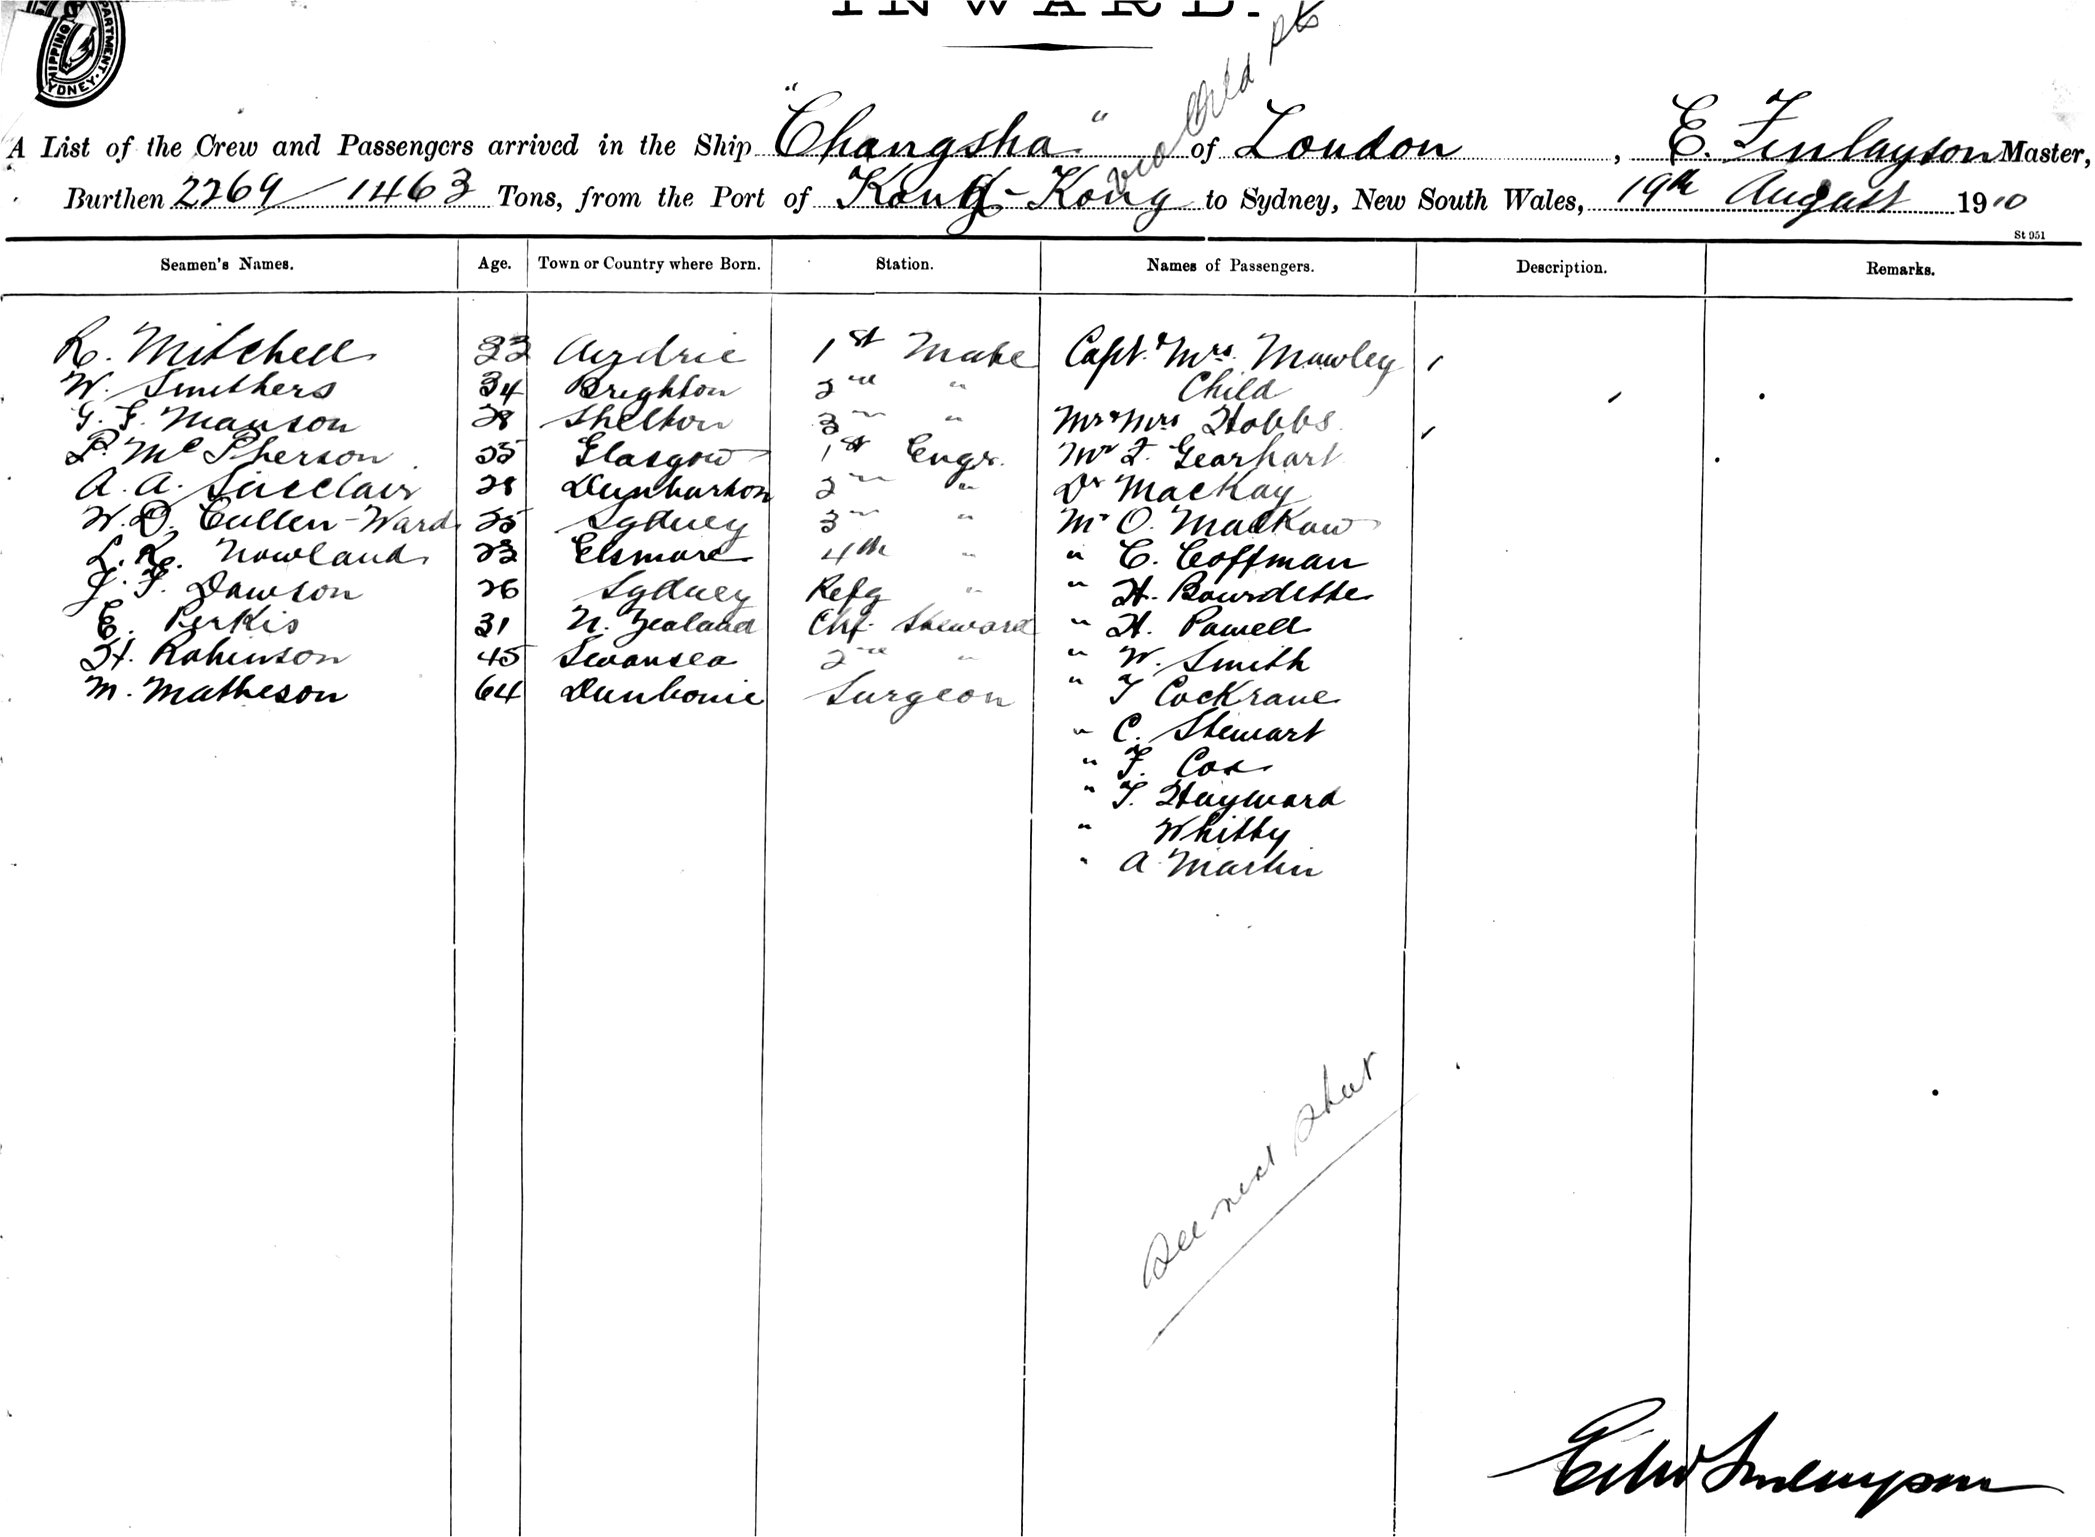 INWARD.
SHIPPING DEPARTMENT. SYDNEY.
via Qld Pts
A List of the Crew and Passengers arrived in the Ship "Changsha" of London, E. Finlayson Master,
Burthen 2269/1463 Tons, from the Port of Hong-Kong to Sydney, New South Wales, 19th August 1910
St 951
Seamen's Names. Age. Town or Country where Born. Station. Names of Passengers. Description. Remarks.
R. Mitchell 33 Airdrie 1st Mate Capt. & Mrs. Mawley
W. Smithers 34 Brighton 2nd " Child
G. F. Manson 28 Shelton 3 " Mr & Mrs Hobbs
P. McPherson 35 Glasgow 1st Engr. Mr F. Gearhart
A. A. Sinclair 28 Dumbarton 2 " Dr MacKay
W. D. Cullen-Ward 25 Sydney 3 " Mr O. Mackaw
L. R. Nowland 23 Elsmore 4th " " C. Coffman
J. F. Dawson 26 Sydney Refg " " H. Bourdette
E. Perkis 31 N. Zealand Chf. Steward " H. Powell
H. Robinson 45 Swansea 2nd " " W. Smith
M. Matheson 64 Surgeon " T Cockrane
" C. Stewart
" F. Cox
" T. Hayward
" Whitby
" A Martin
See next sheet
Edwd Finlayson